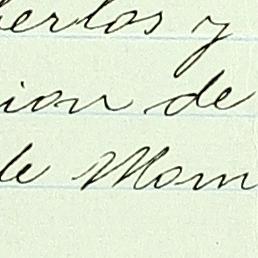 berlos y
ion de
de Mom